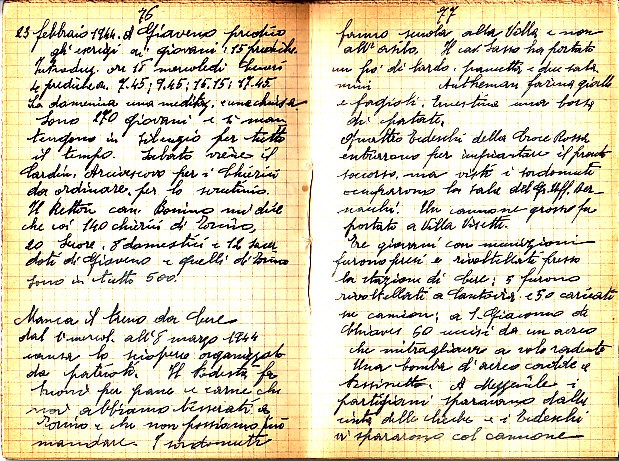 76
23 febbraio 1944. A Giaveno predico
gli esercizi ai giovani: 15 prediche.
Introduz. ore 18 mercoledì
prediche 7.45; 9.45; 16.15; 17.45.
La domenica una medit. e una chiusa
Sono 270 giovani e si man
tengono in silenzio per tutto
il tempo. Sabato viene il
Cardin. Arcivescovo per i Chierici
da ordinare, per lo scrutinio.
Il Rettor can. Bonino mi dice
che coi 140 chierici di Torino,
20 Suore, 8 domestici e 12 sacer
doti di Giaveno e quelli di Torino
sono in tutto 500.
Manca il treno da Ceres
dal 1 mercol. all'8 marzo 1944
causa lo sciopero organizzato
da patrioti. Il Podestà fa
buoni per pane e carne che
noi abbiamo tesserati a
Torino e che non possiamo più
mandare. I sordomuti
77
fanno scuola alla Villa e non
all'asilo. Il cav. Sasso ha portato
un po' di lardo, pancetta e due sala
mini farina gialla
e fagioli, Ernestina una borsa
di patate.
Quattro tedeschi della Croce Rossa
entrarono per impiantare il pronto
soccorso, ma visti i sordomuti
occuparono la sala del Gr. Uff. Ber
nacchi. Un cannone grosso fu
portato a Villa
Tre giovani con munizioni
furono presi e rivoltellati presso
la stazione di Ceres; 5 furono
rivoltellati a Cantoira e 50 caricati
su camion; a S. Giacomo di
60 uccisi da un aereo
che mitragliava a volo radente
Una bomba d'aereo cadde a
Bussinetto. A Mezzenile i
partigiani sparavano dalla
cinta delle e i tedeschi
vi spararono col cannone